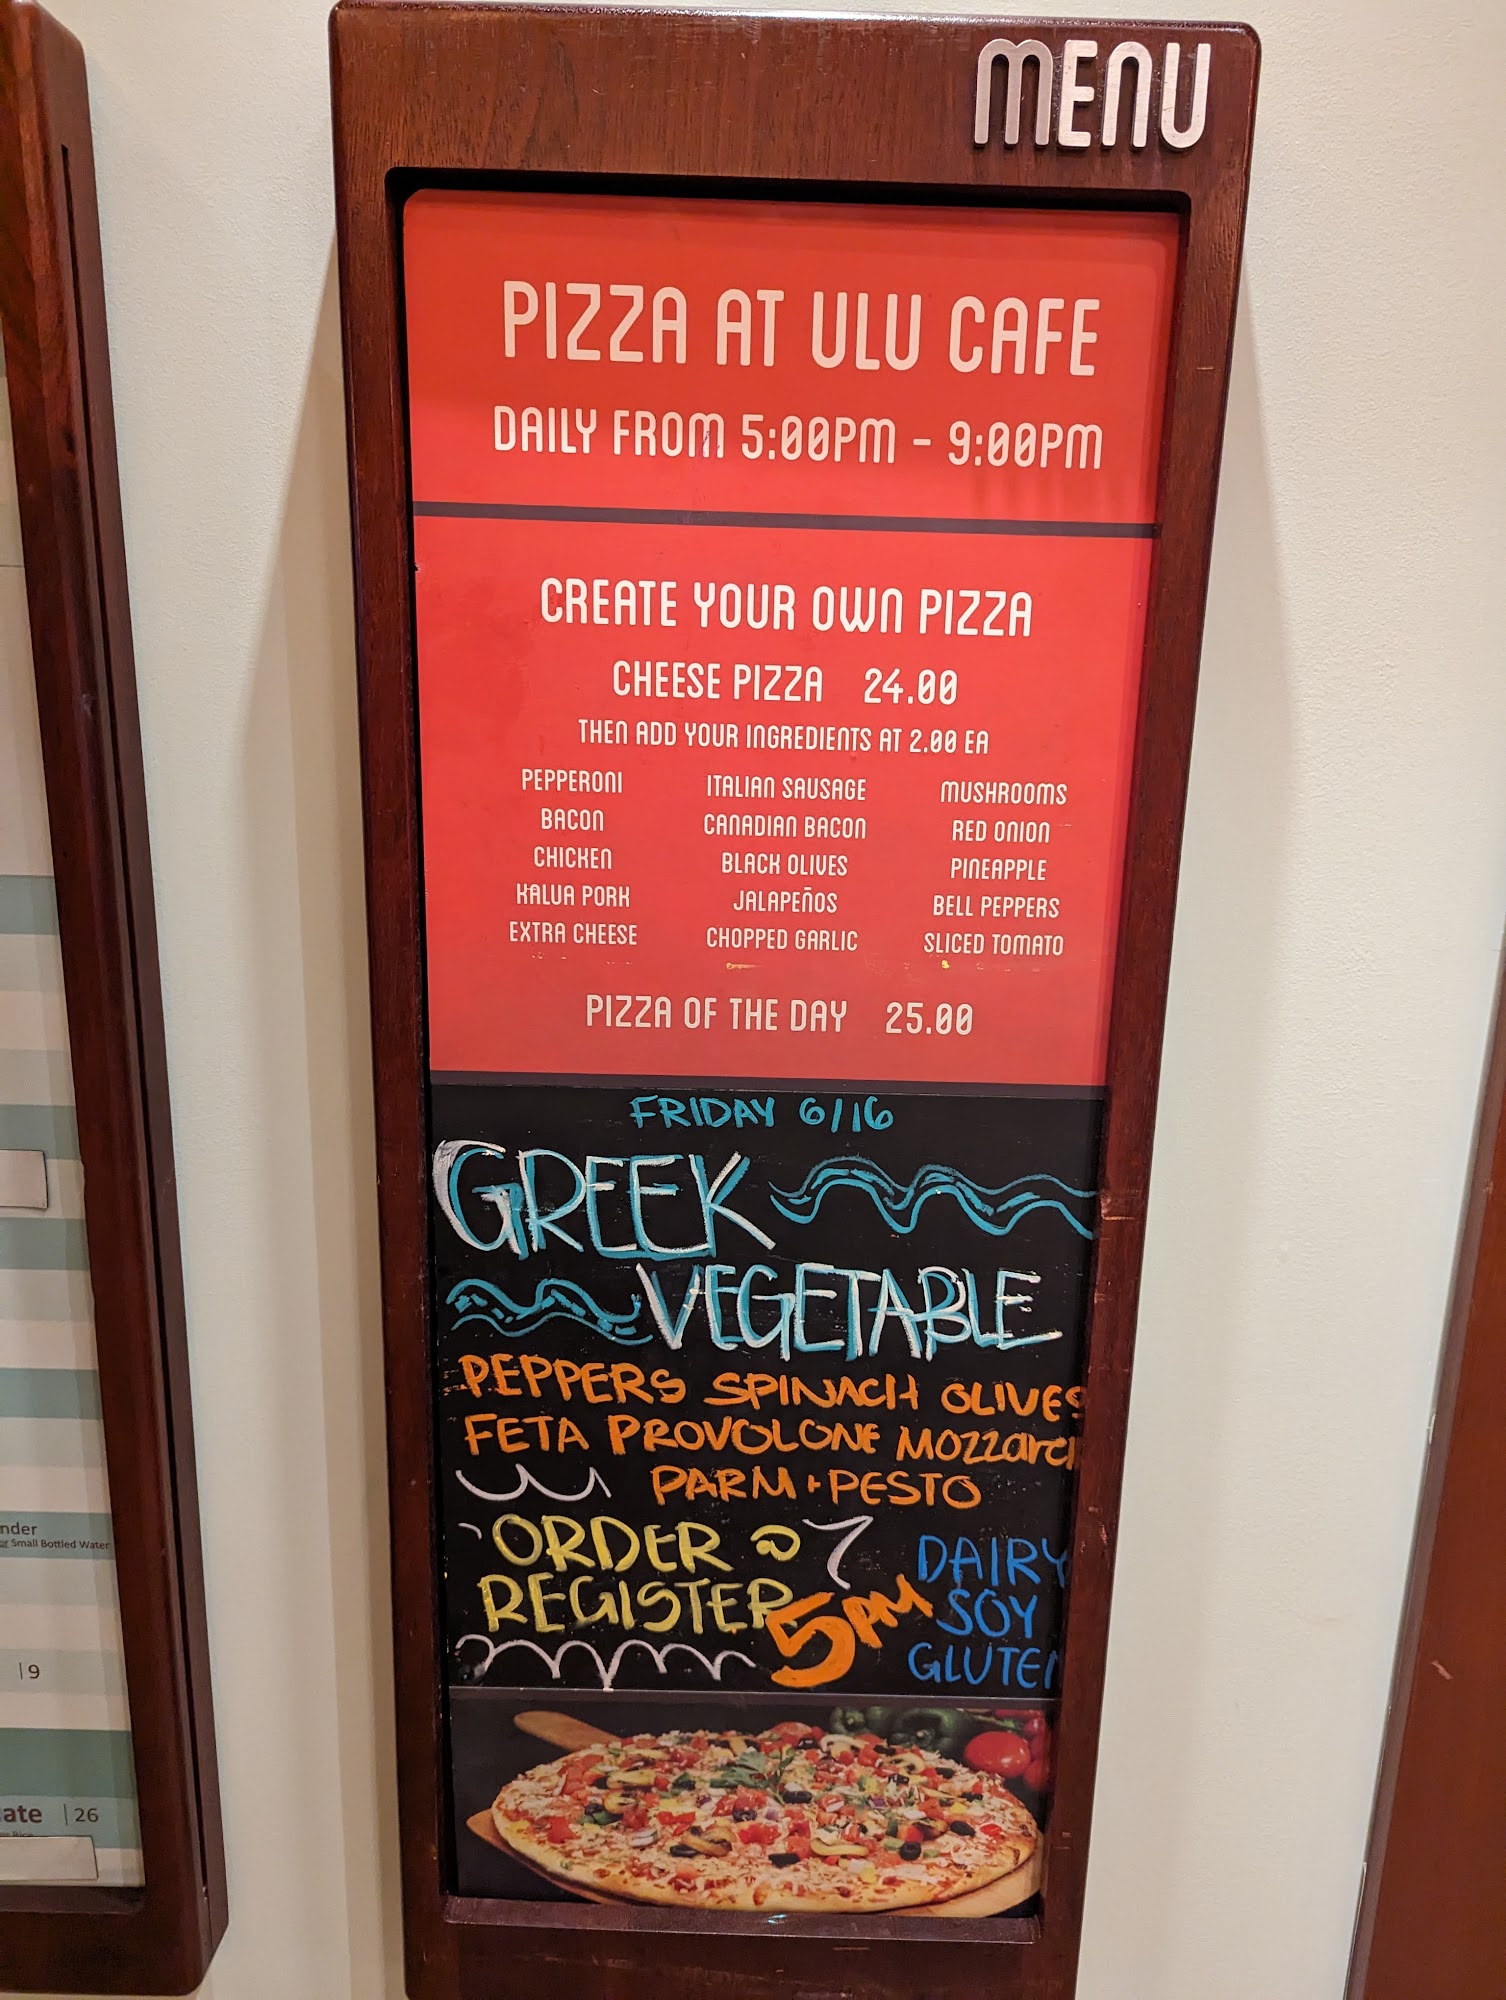 MENU
PIZZA AT ULU CAFE
DAILY FROM 5:00PM - 9:00PM
CREATE YOUR OWN PIZZA
CHEESE PIZZA 24.00
THEN ADD YOUR INGREDIENTS AT 2.00 EA
PEPPERONI ITALIAN SAUSAGE MUSHROOMS
BACON CANADIAN BACON RED ONION
CHICKEN BLACK OLIVES PINEAPPLE
KALUA PORK JALAPEÑOS BELL PEPPERS
EXTRA CHEESE CHOPPED GARLIC SLICED TOMATO
PIZZA OF THE DAY 25.00
FRIDAY 6/16
GREEK
VEGETABLE
PEPPERS SPINACH OLIVES
FETA PROVOLONE MOZZarel
PARM + PESTO
ORDER @
REGISTER
5PM
DAIRY
SOY
GLUTEN
nder
or Small Bottled Water
|9
ate |26